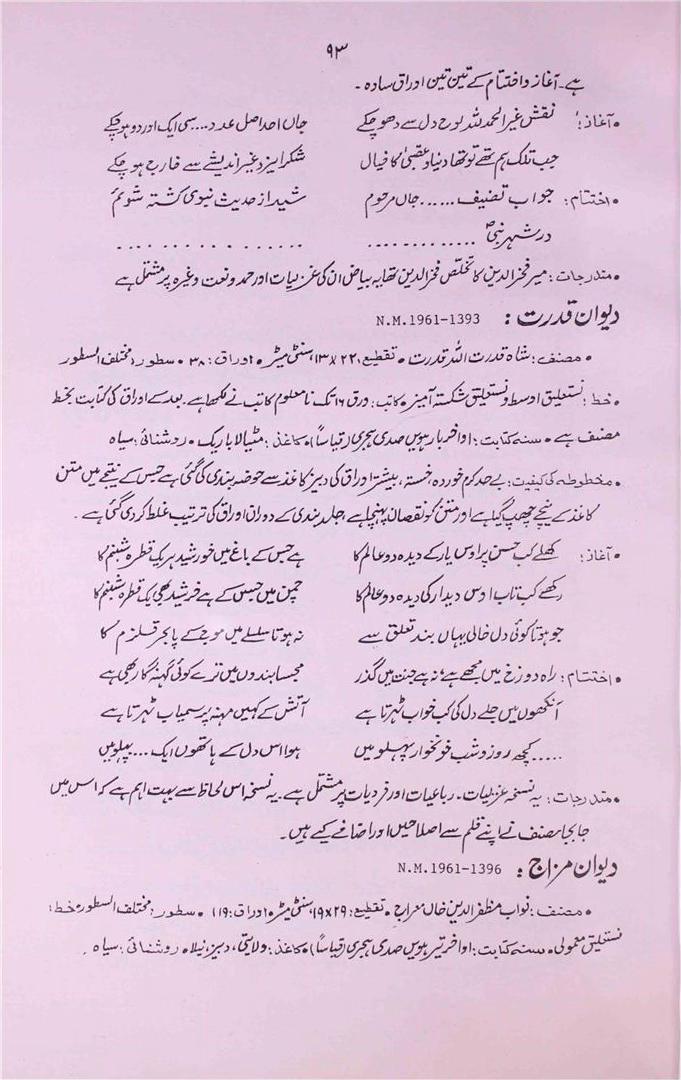 ۹۳
ہے۔ آغاز و اختتام کے تین تین اوراق سادہ۔
• آغاز: نقش غیر الحمد للہ لوح دل سے دھو چکے جاں احد اصل عدد... سی ایک اور دو ہو چکے
جب تلک ہم تھے تو تھا دنیا و عقبیٰ کا خیال شکر ایزد غیر اندیشے سے فارغ ہو چکے
• اختتام: جواب تصنیف ...... جاں مرحوم شیدا ز حدیث نبوی کشتہ شوئم
در شہر نبیؐ ............. ................
• مندرجات: میر فخرالدین کا تخلص فخرالدین تھا یہ بیاض ان کی غزلیات اور حمد و نعت وغیرہ پر مشتمل ہے
دیوان قدرت: N.M.1961-1393
• مصنف: شاہ قدرت اللہ قدرت • تقطیع: ۲۲x۱۳، سنٹی میٹر • اوراق: ۳۸ • سطور: مختلف السطور
• خط: نستعلیق اوسط و نستعلیق شکستہ آمیز • کاتب: ورق ۱۶ تک نامعلوم کاتب نے لکھا ہے۔ بعد کے اوراق کی کتابت بخط
مصنف ہے • سنہ کتابت: اواخر بارہویں صدی ہجری (قیاساً) • کاغذ: مٹیالا باریک • روشنائی: سیاہ
• مخطوطہ کی کیفیت: بے حد کرم خوردہ، خستہ، بیشتر اوراق کی دبیز کاغذ سے حوضہ بندی کی گئی ہے جس کے نتیجے میں متن
کاغذ کے نیچے چھپ گیا ہے اور متن کو نقصان پہنچا ہے، جلد بندی کے دوران اوراق کی ترتیب غلط کر دی گئی ہے۔
• آغاز: کھلے کب حسن پر اوس یار کے دیدہ دو عالم کا ہے جس کے باغ میں خورشید ہر یک قطرہ شبنم کا
رکھے کب تاب اوس دیدار کی دیدہ دو عالم کا چمن میں جس کے ہے خورشید بھی یک قطرہ شبنم کا
جو ہوتا کوئی دل خالی یہاں بند تعلق سے نہ ہوتا سلسلے میں موج کے پا بحر قلزم کا
• اختتام: راہ دوزخ میں مجھے ہے نہ ہے جنت میں گذر مجسا بندوں میں ترے کوئی گہنہ گار بھی ہے
آنکھوں میں جلے دل کی کب خواب ٹہرتا ہے آتش کے کہیں مہنہ پر سیماب ٹہرتا ہے
..... کچھ روز و شب خونخوار پہلو میں ہوا اس دل کے ہاتھوں ایک ... پہلو میں
• مندرجات: یہ نسخہ غزلیات۔ رباعیات اور فردیات پر مشتمل ہے۔ یہ نسخہ اس لحاظ سے بہت اہم ہے کہ اس میں
جا بجا مصنف نے اپنے قلم سے اصلاحیں اور اضافے کیے ہیں۔
دیوان مزاج: N.M.1961-1396
• مصنف: نواب مظفر الدین خاں معراج • تقطیع: ۲۹x۱۹، سنٹی میٹر • اوراق: ۱۱۹ • سطور: مختلف السطور • خط:
نستعلیق معمولی • سنہ کتابت: اواخر تیرہویں صدی ہجری (قیاساً) • کاغذ: ولایتی، دبیز، نیلا • روشنائی: سیاہ۔